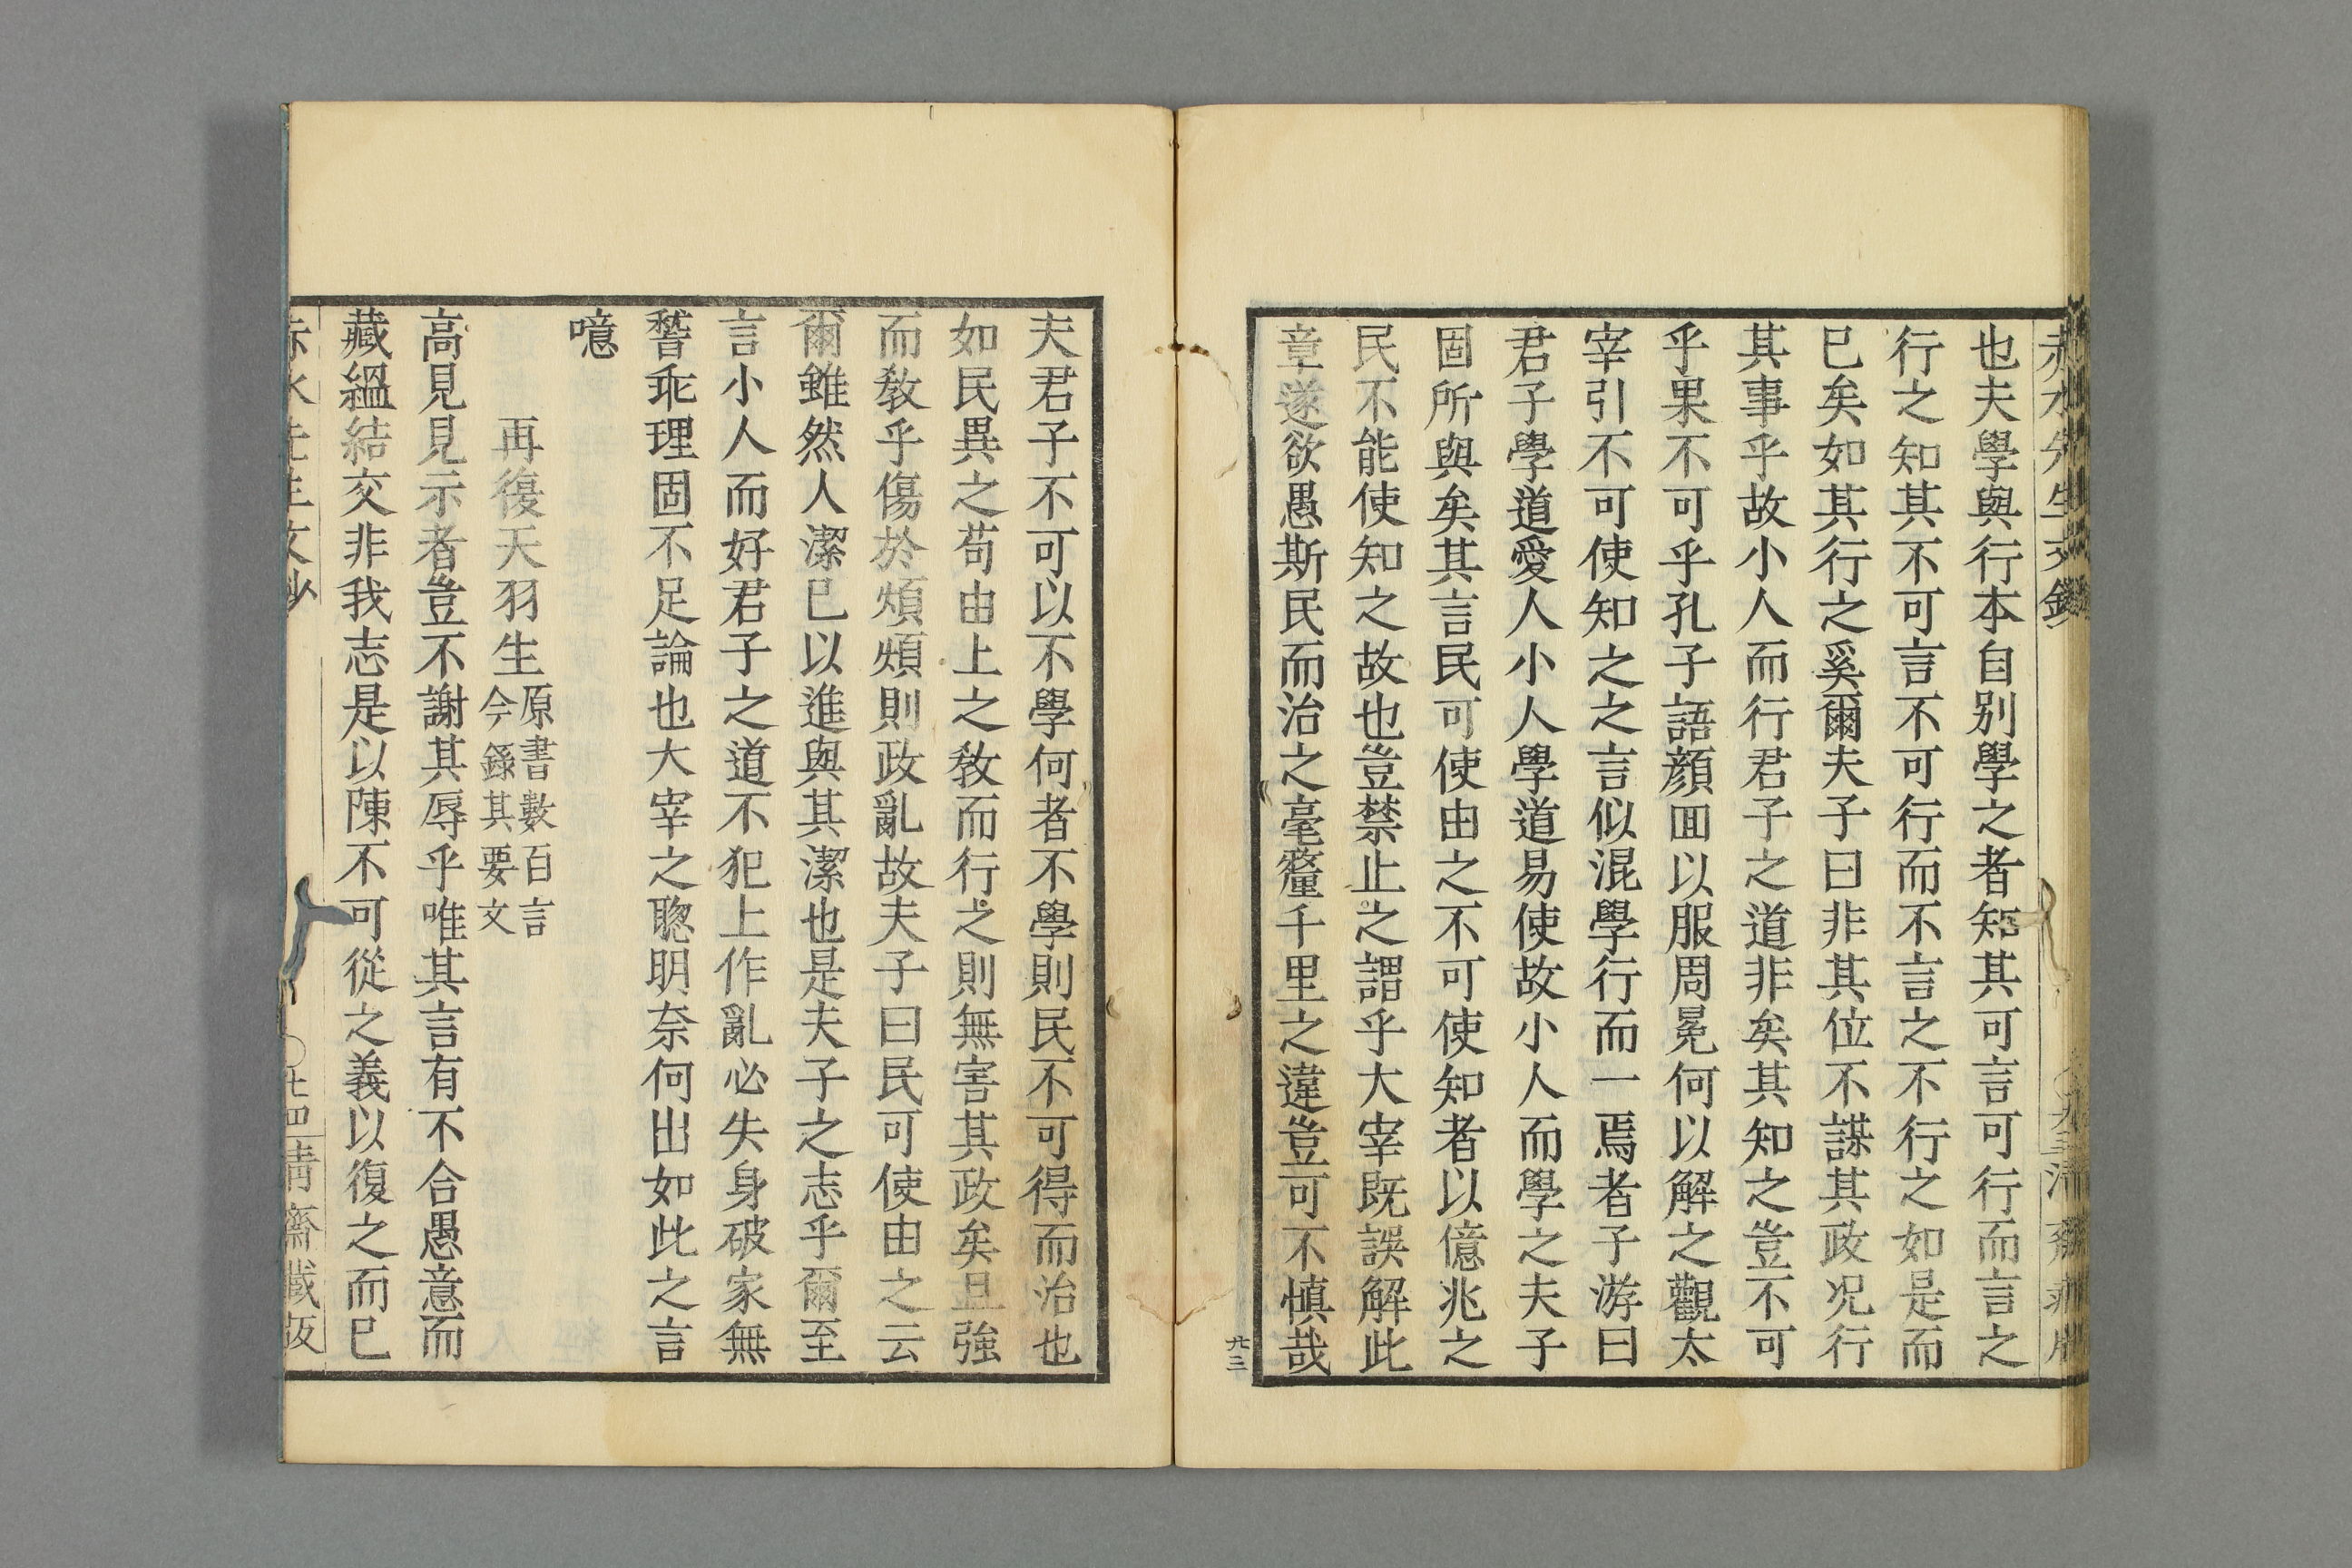 也夫學與行本自別學之者知其可言可行而言之
行之知其不可言不可行而不言之不行之如是而
已矣如其行之奚爾夫子曰非其位不謀其政况行
其事乎故小人而行君子之道非矣其知之豈不可
乎果不可乎孔子語顔回以服周冕何以解之觀太
宰引不可使知之之言似混學行而一焉者子游曰
君子學道愛人小人學道易使故小人而學之夫子
固所與矣其言民可使由之不可使知者以億兆之
民不能使知之故也豈禁止之謂乎大宰既誤解此
章遂欲愚斯民而治之毫釐千里之違豈可不慎哉
廾三
夫君子不可以不學何者不學則民不可得而治也
如民異之苟由上之敎而行之則無害其政矣且強
而敎乎傷於煩煩則政亂故夫子曰民可使由之云
爾雖然人潔已以進與其潔也是夫子之志乎爾至
言小人而好君子之道不犯上作亂必失身破家無
瞀乖理固不足論也大宰之聰明奈何出如此之言
噫
再復天羽生 原書數百言
今錄其要文
高見見示者豈不謝其辱乎唯其言有不合愚意而
藏縕結交非我志是以陳不可從之義以復之而已
赤水先生文鈔 廿四 靑齋藏版